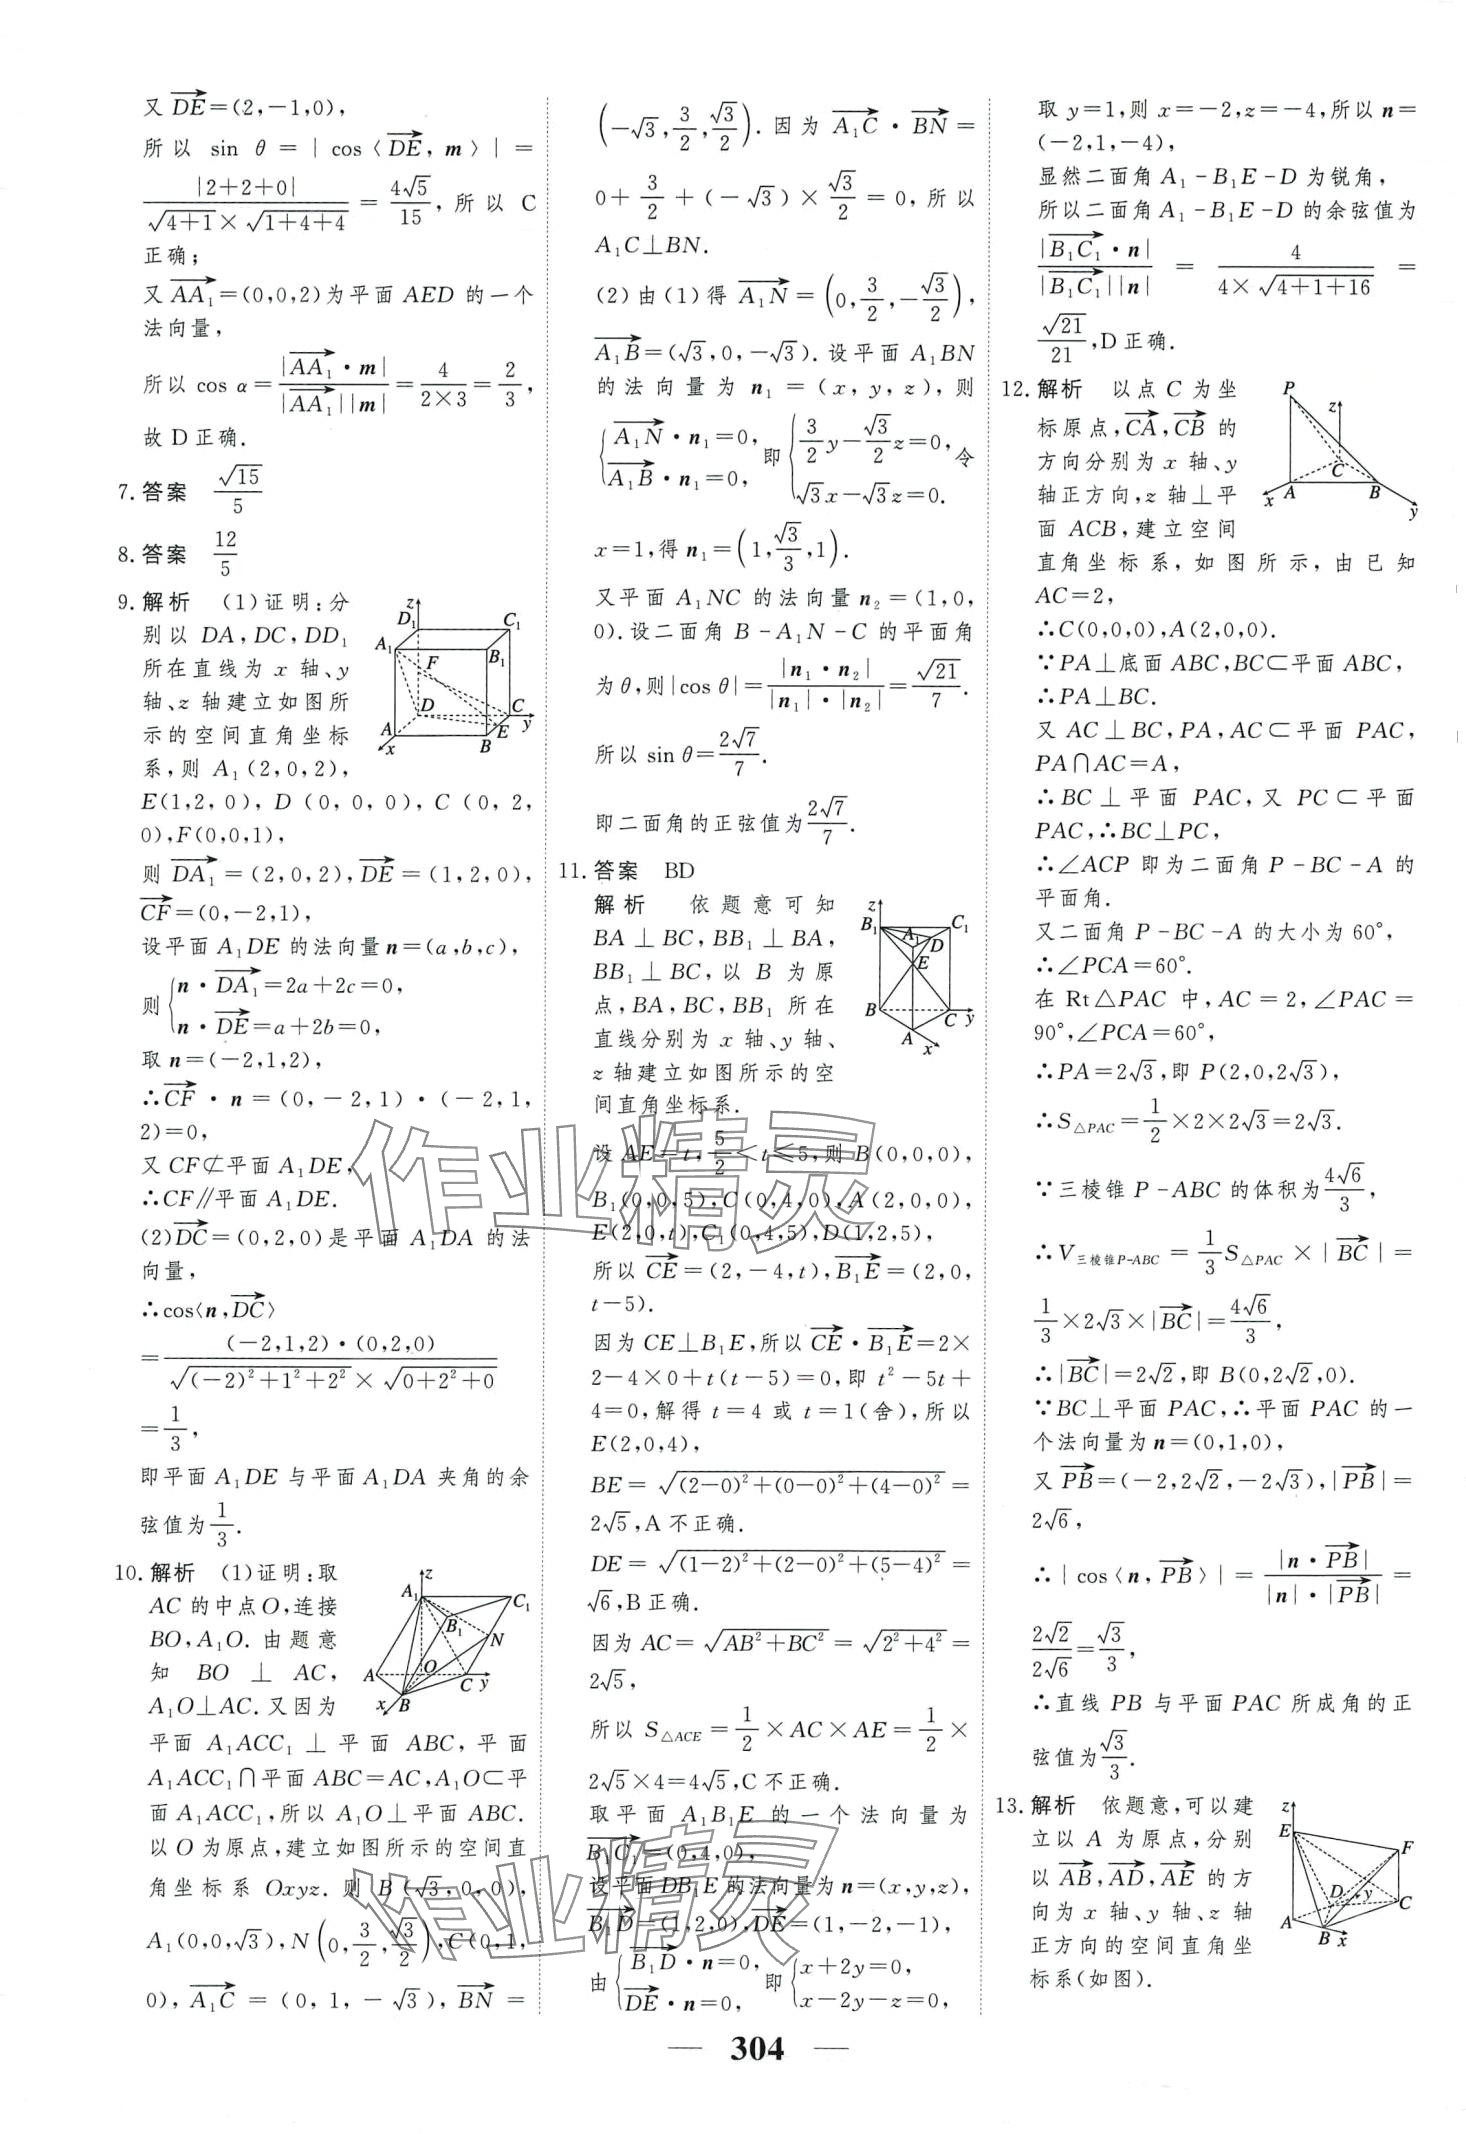 又 DE→=(2,-1,0),
所以 sin θ = | cos⟨DE→, m⟩ | =
|2+2+0| / (√(4+1) × √(1+4+4)) = 4√5/15, 所以 C
正确;
又 AA₁→=(0,0,2)为平面 AED 的一个
法向量,
所以 cos α = |AA₁→·m| / (|AA₁→||m|) = 4/(2×3) = 2/3,
故 D 正确.
7. 答案 √15/5
8. 答案 12/5
9. 解析 (1)证明:分
别以 DA,DC,DD₁
所在直线为 x 轴、y
轴、z 轴建立如图所
示的空间直角坐标
系,则 A₁(2,0,2),
E(1,2,0), D (0,0,0), C (0,2,
0),F(0,0,1),
则 DA₁→=(2,0,2),DE→=(1,2,0),
CF→=(0,-2,1),
设平面 A₁DE 的法向量 n=(a,b,c),
则 { n·DA₁→=2a+2c=0,
n·DE→=a+2b=0,
取 n=(-2,1,2),
∴CF→·n=(0,-2,1)·(-2,1,
2)=0,
又 CF⊄平面 A₁DE,
∴CF∥平面 A₁DE.
(2)DC→=(0,2,0)是平面 A₁DA 的法
向量,
∴cos⟨n,DC→⟩
= (-2,1,2)·(0,2,0) / (√((-2)²+1²+2²) × √(0+2²+0))
= 1/3,
即平面 A₁DE 与平面 A₁DA 夹角的余
弦值为 1/3.
10. 解析 (1)证明:取
AC 的中点 O,连接
BO,A₁O. 由题意
知 BO ⊥ AC,
A₁O⊥AC. 又因为
平面 A₁ACC₁ ⊥ 平面 ABC, 平面
A₁ACC₁∩平面 ABC=AC,A₁O⊂平
面 A₁ACC₁,所以 A₁O⊥平面 ABC.
以 O 为原点,建立如图所示的空间直
角坐标系 Oxyz. 则 B(√3,0,0),
A₁(0,0,√3),N(0,3/2,√3/2),C(0,1,
0), A₁C→=(0,1,-√3),BN→=
(-√3,3/2,√3/2). 因为 A₁C→·BN→=
0+3/2+(-√3)×√3/2=0, 所以
A₁C⊥BN.
(2)由(1)得 A₁N→=(0,3/2,-√3/2),
A₁B→=(√3,0,-√3). 设平面 A₁BN
的法向量为 n₁=(x,y,z), 则
{ A₁N→·n₁=0, A₁B→·n₁=0, 即 { 3/2 y-√3/2 z=0, √3x-√3z=0. 令
x=1,得 n₁=(1,√3/3,1).
又平面 A₁NC 的法向量 n₂=(1,0,
0). 设二面角 B-A₁N-C 的平面角
为 θ,则|cos θ|=|n₁·n₂| / (|n₁|·|n₂|) = √21/7.
所以 sin θ=2√7/7.
即二面角的正弦值为 2√7/7.
11. 答案 BD
解析 依题意可知
BA⊥BC,BB₁⊥BA,
BB₁⊥BC, 以 B 为原
点,BA,BC,BB₁ 所在
直线分别为 x 轴、y 轴、
z 轴建立如图所示的空
间直角坐标系.
设 AE=t, 5/2<t≤5,则 B(0,0,0),
B₁(0,0,5),C(0,4,0),A(2,0,0),
E(2,0,t),C₁(0,4,5),D(1,2,5),
所以 CE→=(2,-4,t),B₁E→=(2,0,
t-5).
因为 CE⊥B₁E,所以 CE→·B₁E→=2×
2-4×0+t(t-5)=0,即 t²-5t+
4=0,解得 t=4 或 t=1(舍),所以
E(2,0,4),
BE=√((2-0)²+(0-0)²+(4-0)²)=
2√5,A 不正确.
DE=√((1-2)²+(2-0)²+(5-4)²)=
√6,B 正确.
因为 AC=√(AB²+BC²)=√(2²+4²)=
2√5,
所以 S△ACE=1/2×AC×AE=1/2×
2√5×4=4√5,C 不正确.
取平面 A₁B₁E 的一个法向量为
B₁C₁→=(0,4,0),
设平面 DB₁E 的法向量为 n=(x,y,z),
B₁D→=(1,2,0),DE→=(1,-2,-1),
由 { B₁D→·n=0, DE→·n=0, 即 { x+2y=0, x-2y-z=0,
取 y=1,则 x=-2,z=-4,所以 n=
(-2,1,-4),
显然二面角 A₁-B₁E-D 为锐角,
所以二面角 A₁-B₁E-D 的余弦值为
|B₁C₁→·n| / (|B₁C₁→||n|) = 4 / (4×√(4+1+16)) =
√21/21,D 正确.
12. 解析 以点 C 为坐
标原点,CA→,CB→ 的
方向分别为 x 轴、y
轴正方向,z 轴⊥平
面 ACB,建立空间
直角坐标系, 如图所示, 由已知
AC=2,
∴C(0,0,0),A(2,0,0).
∵PA⊥底面 ABC,BC⊂平面 ABC,
∴PA⊥BC.
又 AC⊥BC,PA,AC⊂平面 PAC,
PA∩AC=A,
∴BC⊥平面 PAC, 又 PC⊂平面
PAC,∴BC⊥PC,
∴∠ACP 即为二面角 P-BC-A 的
平面角.
又二面角 P-BC-A 的大小为 60°,
∴∠PCA=60°.
在 Rt△PAC 中,AC=2,∠PAC=
90°,∠PCA=60°,
∴PA=2√3,即 P(2,0,2√3),
∴S△PAC=1/2×2×2√3=2√3.
∵三棱锥 P-ABC 的体积为 4√6/3,
∴V三棱锥P-ABC=1/3 S△PAC×|BC→|=
1/3×2√3×|BC→|=4√6/3,
∴|BC→|=2√2,即 B(0,2√2,0).
∵BC⊥平面 PAC,∴平面 PAC 的一
个法向量为 n=(0,1,0),
又 PB→=(-2,2√2,-2√3),|PB→|=
2√6,
∴|cos⟨n,PB→⟩|=|n·PB→| / (|n|·|PB→|)=
2√2/2√6=√3/3,
∴直线 PB 与平面 PAC 所成角的正
弦值为 √3/3.
13. 解析 依题意,可以建
立以 A 为原点,分别
以 AB→,AD→,AE→ 的方
向为 x 轴、y 轴、z 轴
正方向的空间直角坐
标系(如图).
304
作业精灵
作业精灵